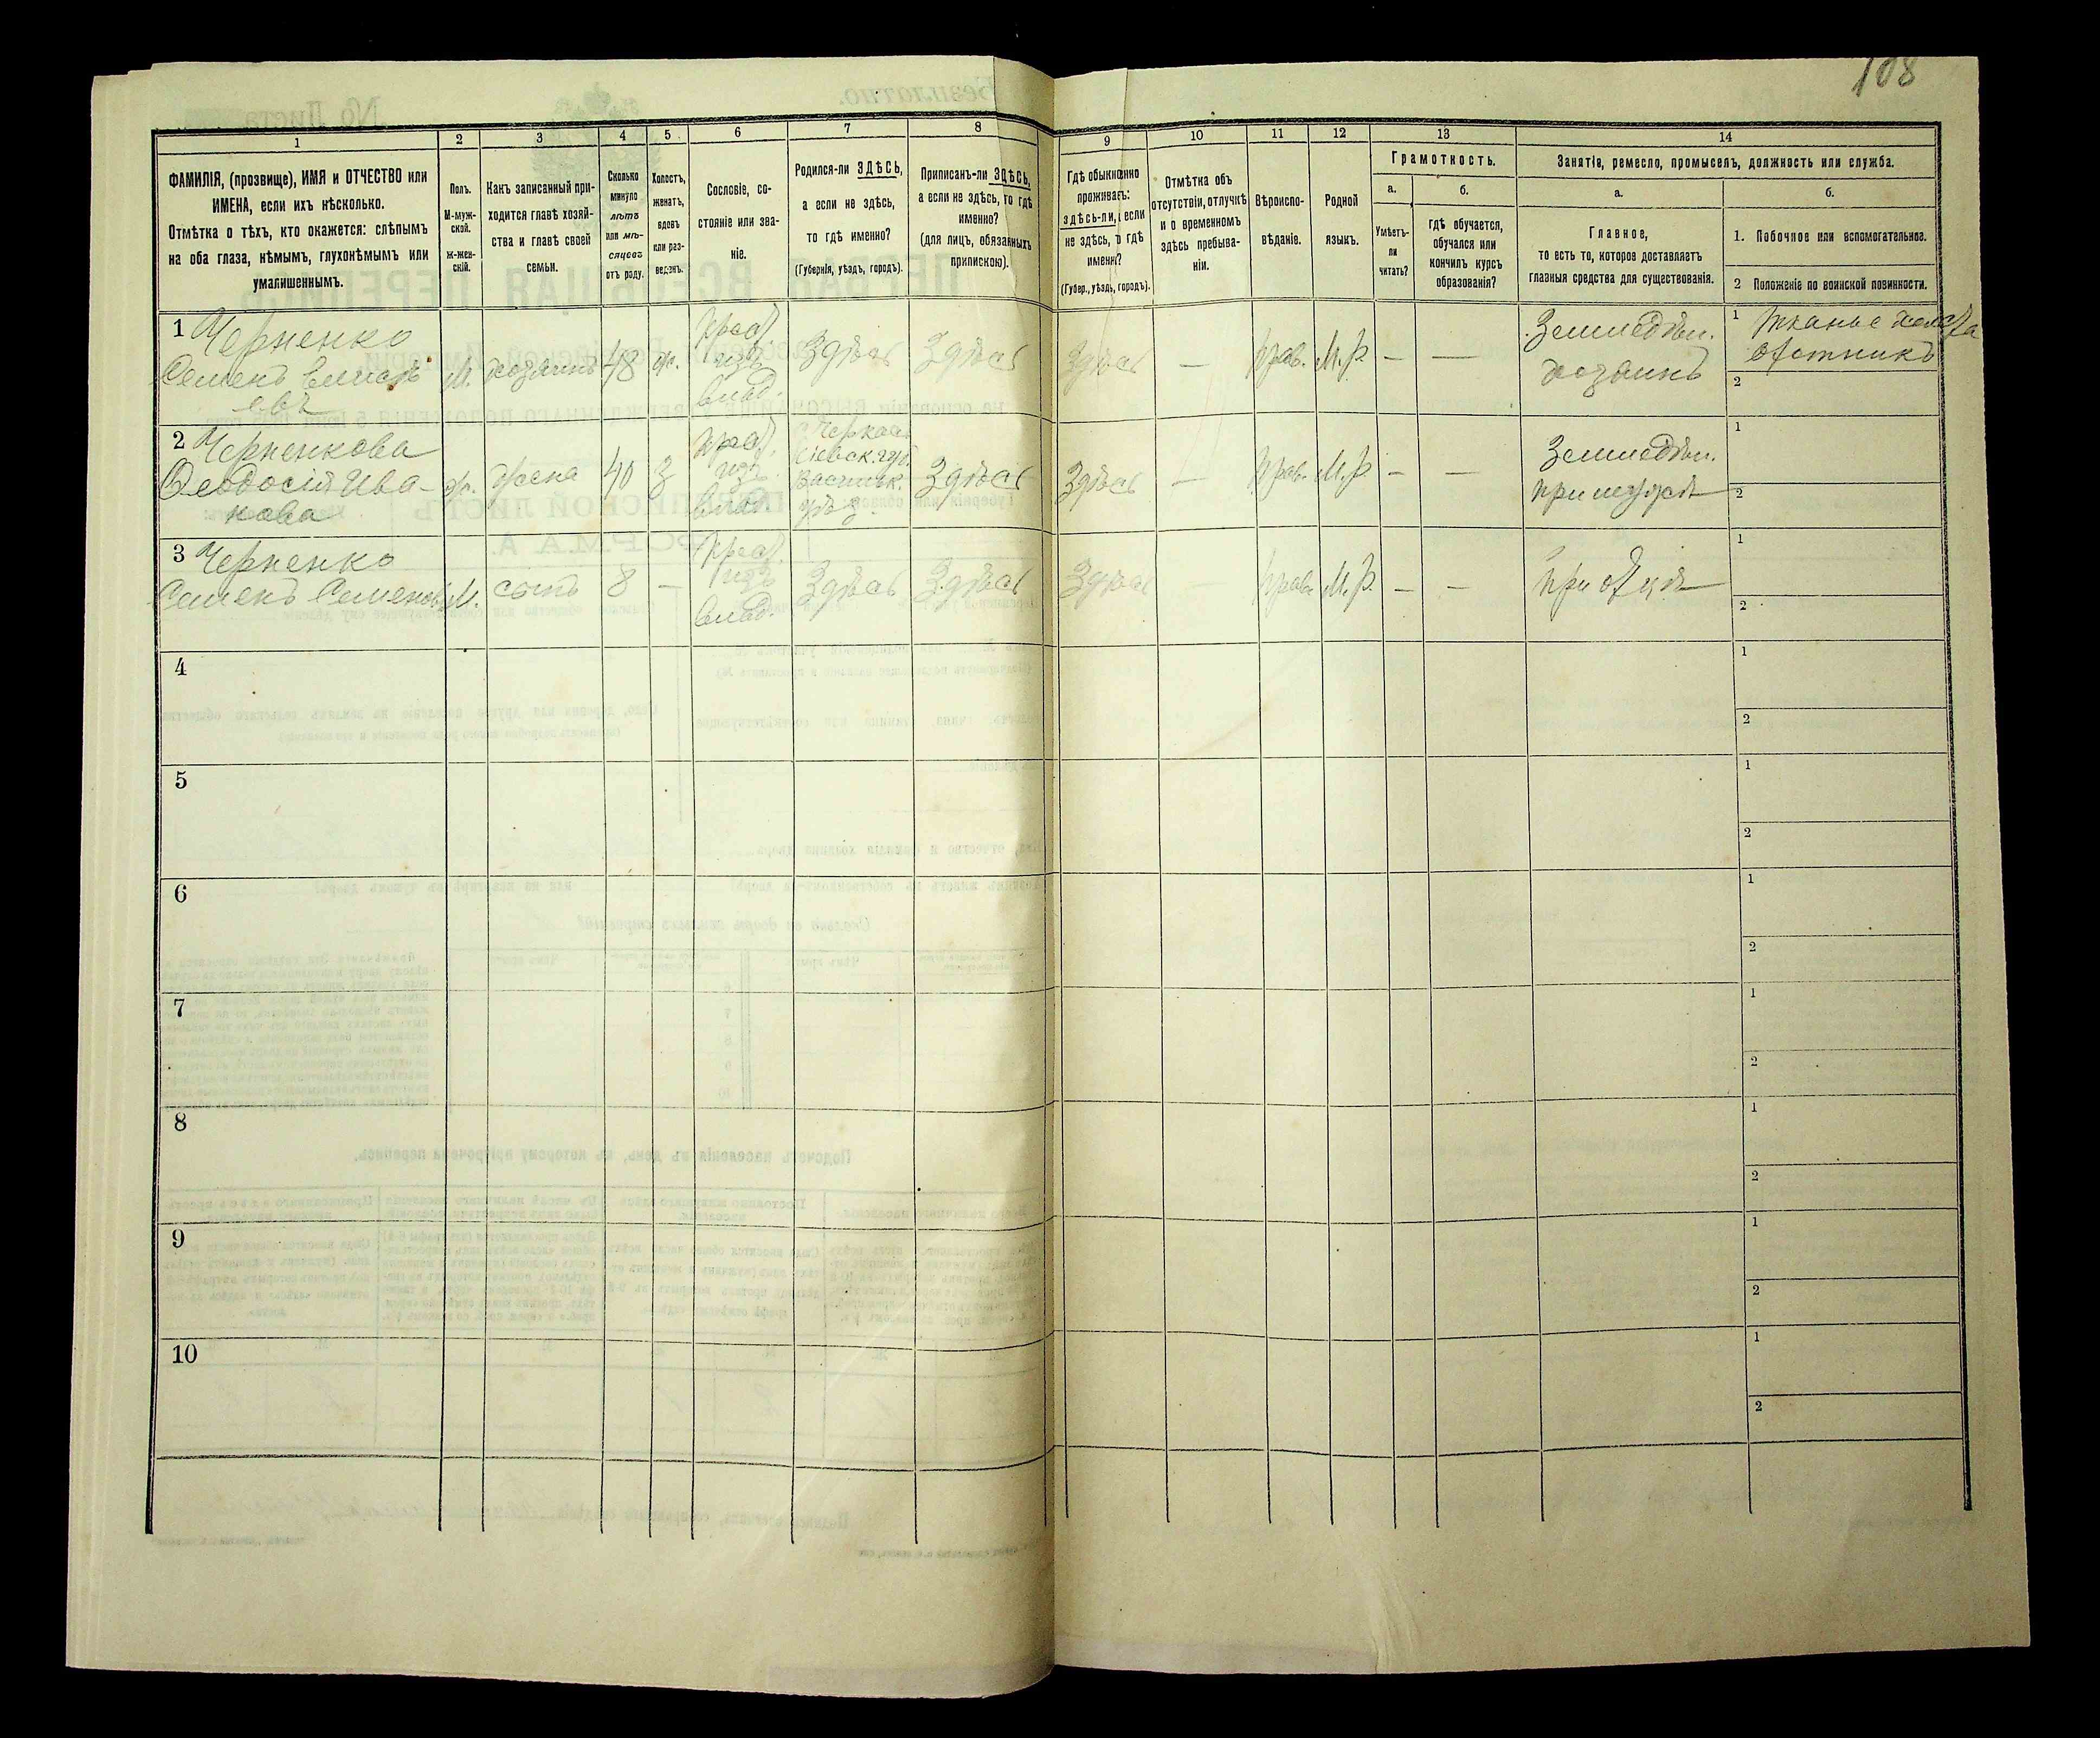 108
1
2
3
4
5
6
7
8
9
10
11
12
13
14
ФАМИЛІЯ, (прозвище), ИМЯ и ОТЧЕСТВО или
ИМЕНА, если ихъ нѣсколько.
Отмѣтка о тѣхъ, кто окажется: слѣпымъ
на оба глаза, нѣмымъ, глухонѣмымъ или
умалишеннымъ.
Полъ.
М-муж-
ской.
ж-жен-
скій.
Какъ записанный при-
ходится главѣ хозяй-
ства и главѣ своей
семьи.
Сколько
минуло
лѣтъ
или мѣ-
сяцевъ
отъ роду.
Холостъ,
женатъ,
вдовъ
или раз-
веденъ.
Сословіе, со-
стояніе или зва-
ніе.
Родился-ли ЗДѢСЬ,
а если не здѣсь,
то гдѣ именно?
(Губернія, уѣздъ, городъ).
Приписанъ-ли ЗДѢСЬ,
а если не здѣсь, то гдѣ
именно?
(для лицъ, обязанныхъ
припискою).
Гдѣ обыкновенно
проживаетъ:
здѣсь-ли, если
не здѣсь, то гдѣ
именно?
(Губер., уѣздъ, городъ).
Отмѣтка объ
отсутствіи, отлучкѣ
и о временномъ
здѣсь пребыва-
ніи.
Вѣроиспо-
вѣданіе.
Родной
языкъ.
Грамотность.
а.
Умѣетъ-
ли
читать?
б.
гдѣ обучается,
обучался или
кончилъ курсъ
образованія?
Занятія, ремесло, промыселъ, должность или служба.
а.
Главное,
то есть то, которое доставляетъ
главныя средства для существованія.
б.
1. Побочное или вспомогательное.
2 Положеніе по воинской повинности.
1 Черненко
Семенъ
М.
хозяинъ
48
ж.
крест.
изъ
влад.
Здѣсь
Здѣсь
Здѣсь
—
Прав.
М.р.
—
—
Земледѣл.
хозяинъ
1 тканье холста
2
2 Черненкова
Ѳеодосія Ива-
нова
ж.
жена
40
З
крест.
изъ
влад.
Кіевск. губ.
уѣз.
Здѣсь
Здѣсь
—
Прав.
М.р.
—
—
Земледѣл.
при мужѣ
1
2
3 Черненко
Семенъ Семеновъ
М.
сынъ
8
—
крест.
изъ
влад.
Здѣсь
Здѣсь
Здѣсь
—
Прав.
М.р.
—
—
при отцѣ
1
2
4
1
2
5
1
2
6
1
2
7
1
2
8
1
2
9
1
2
10
1
2